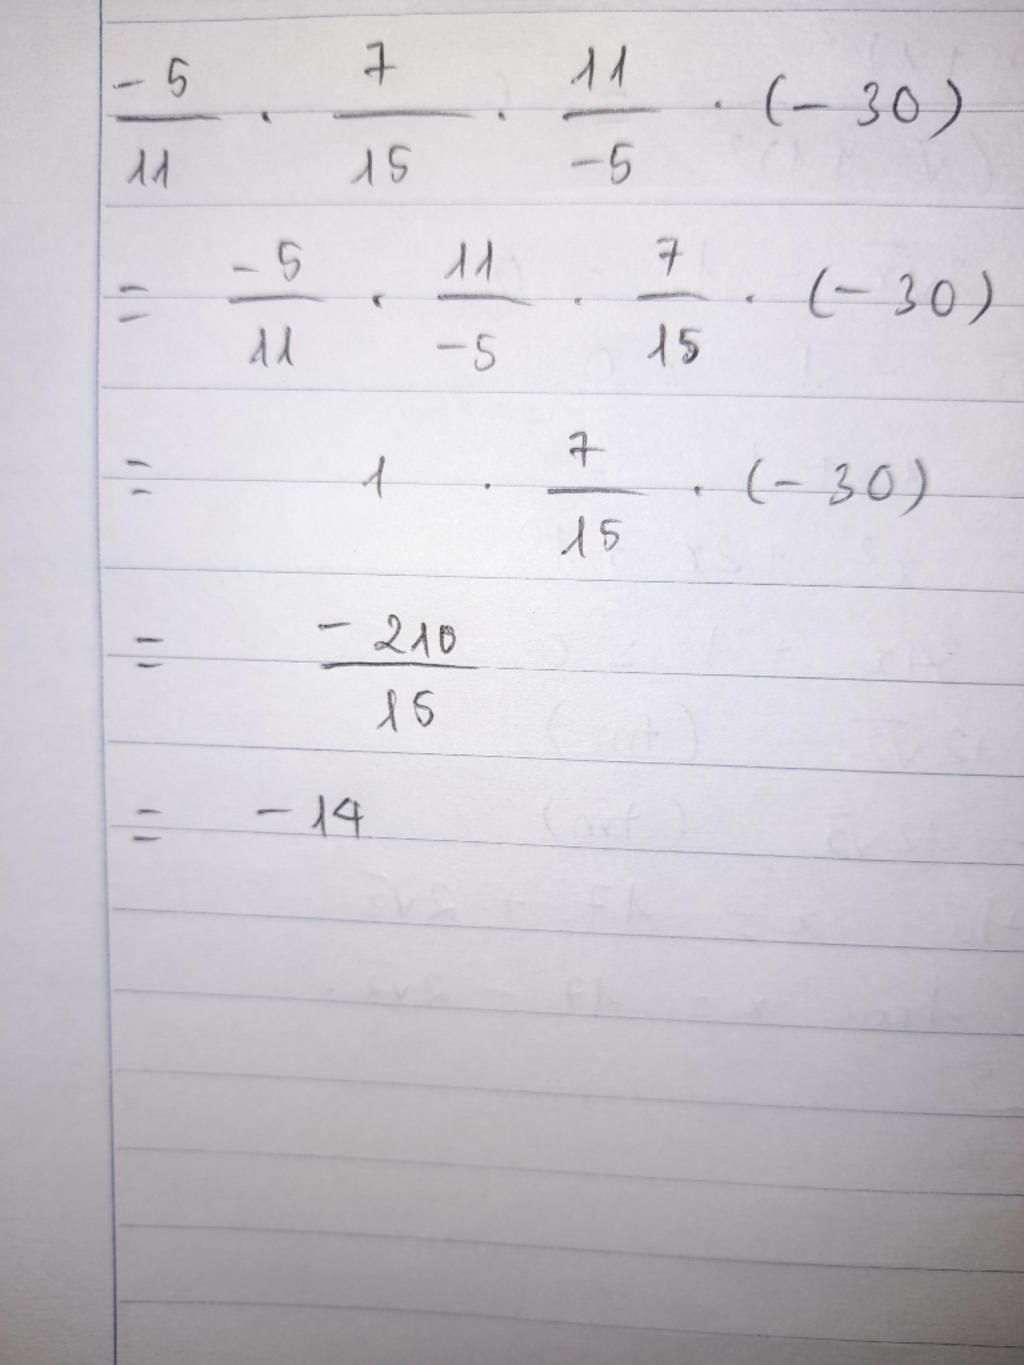 -5/11 . 7/15 . 11/-5 . (-30)
= -5/11 . 11/-5 . 7/15 . (-30)
= 1 . 7/15 . (-30)
= -210/15
= -14